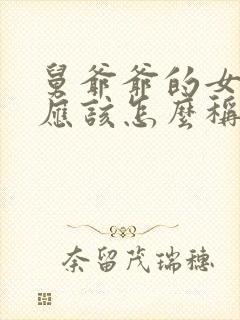 舅爺爺的女
應該怎麼稱
奈留茂瑞穗